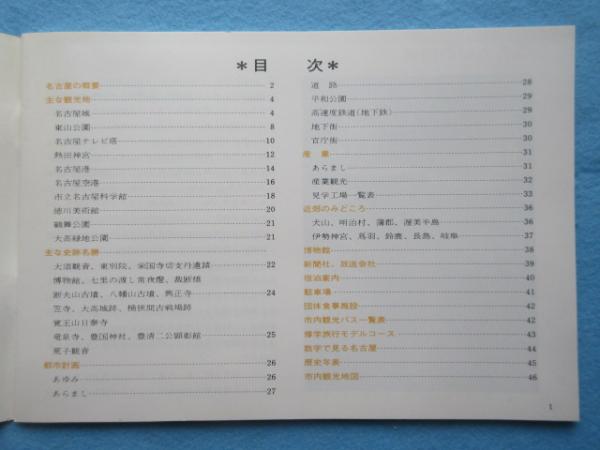 ＊目 次＊
名古屋の概要 2
主な観光地 4
名古屋城 4
東山公園 8
名古屋テレビ塔 10
熱田神宮 12
名古屋港 14
名古屋空港 16
市立名古屋科学館 18
徳川美術館 20
鶴舞公園 21
大高緑地公園 21
主な史跡名勝
大須観音、東別院、栄国寺切支丹遺蹟 22
博物館、七里の渡し常夜燈、裁断橋
断夫山古墳、八幡山古墳、興正寺 24
笠寺、大高城跡、桶狭間古戦場跡
覚王山日泰寺
竜泉寺、豊国神社、豊清二公顕彰館 25
荒子観音
都市計画 26
あゆみ 26
あらまし 27
道 路 28
平和公園 29
高速度鉄道(地下鉄) 29
地下街 30
官庁街 30
産 業 31
あらまし 31
産業観光 32
見学工場一覧表 33
近郊のみどころ 36
犬山、明治村、蒲郡、渥美半島 36
伊勢神宮、鳥羽、鈴鹿、長島、岐阜 37
博物館 38
新聞社、放送会社 39
宿泊案内 40
駐車場 41
団体食事施設 42
市内観光バス一覧表 42
修学旅行モデルコース 43
数字で見る名古屋 44
歴史年表 45
市内観光地図 46
1